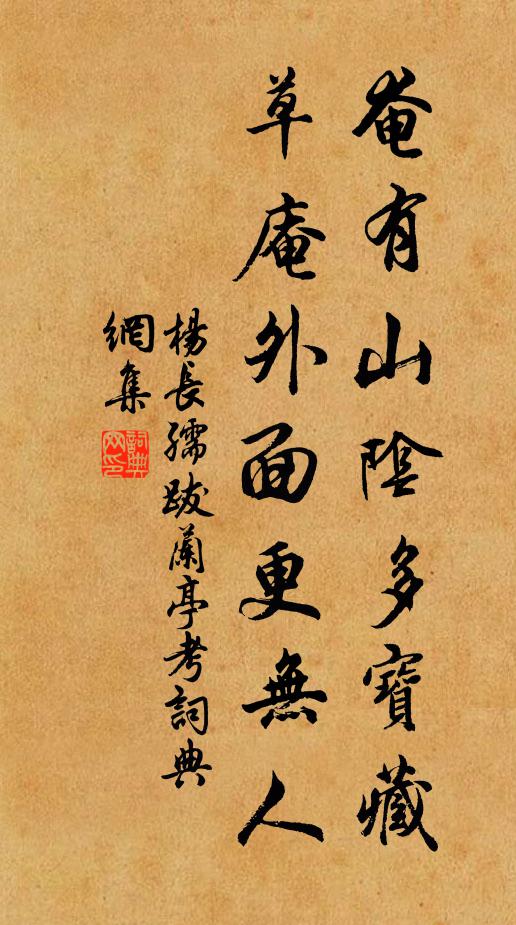 奄有山陰多寶藏
草庵外面更無人
楊長孺跋蘭亭考詞典
網集
詞典
网印